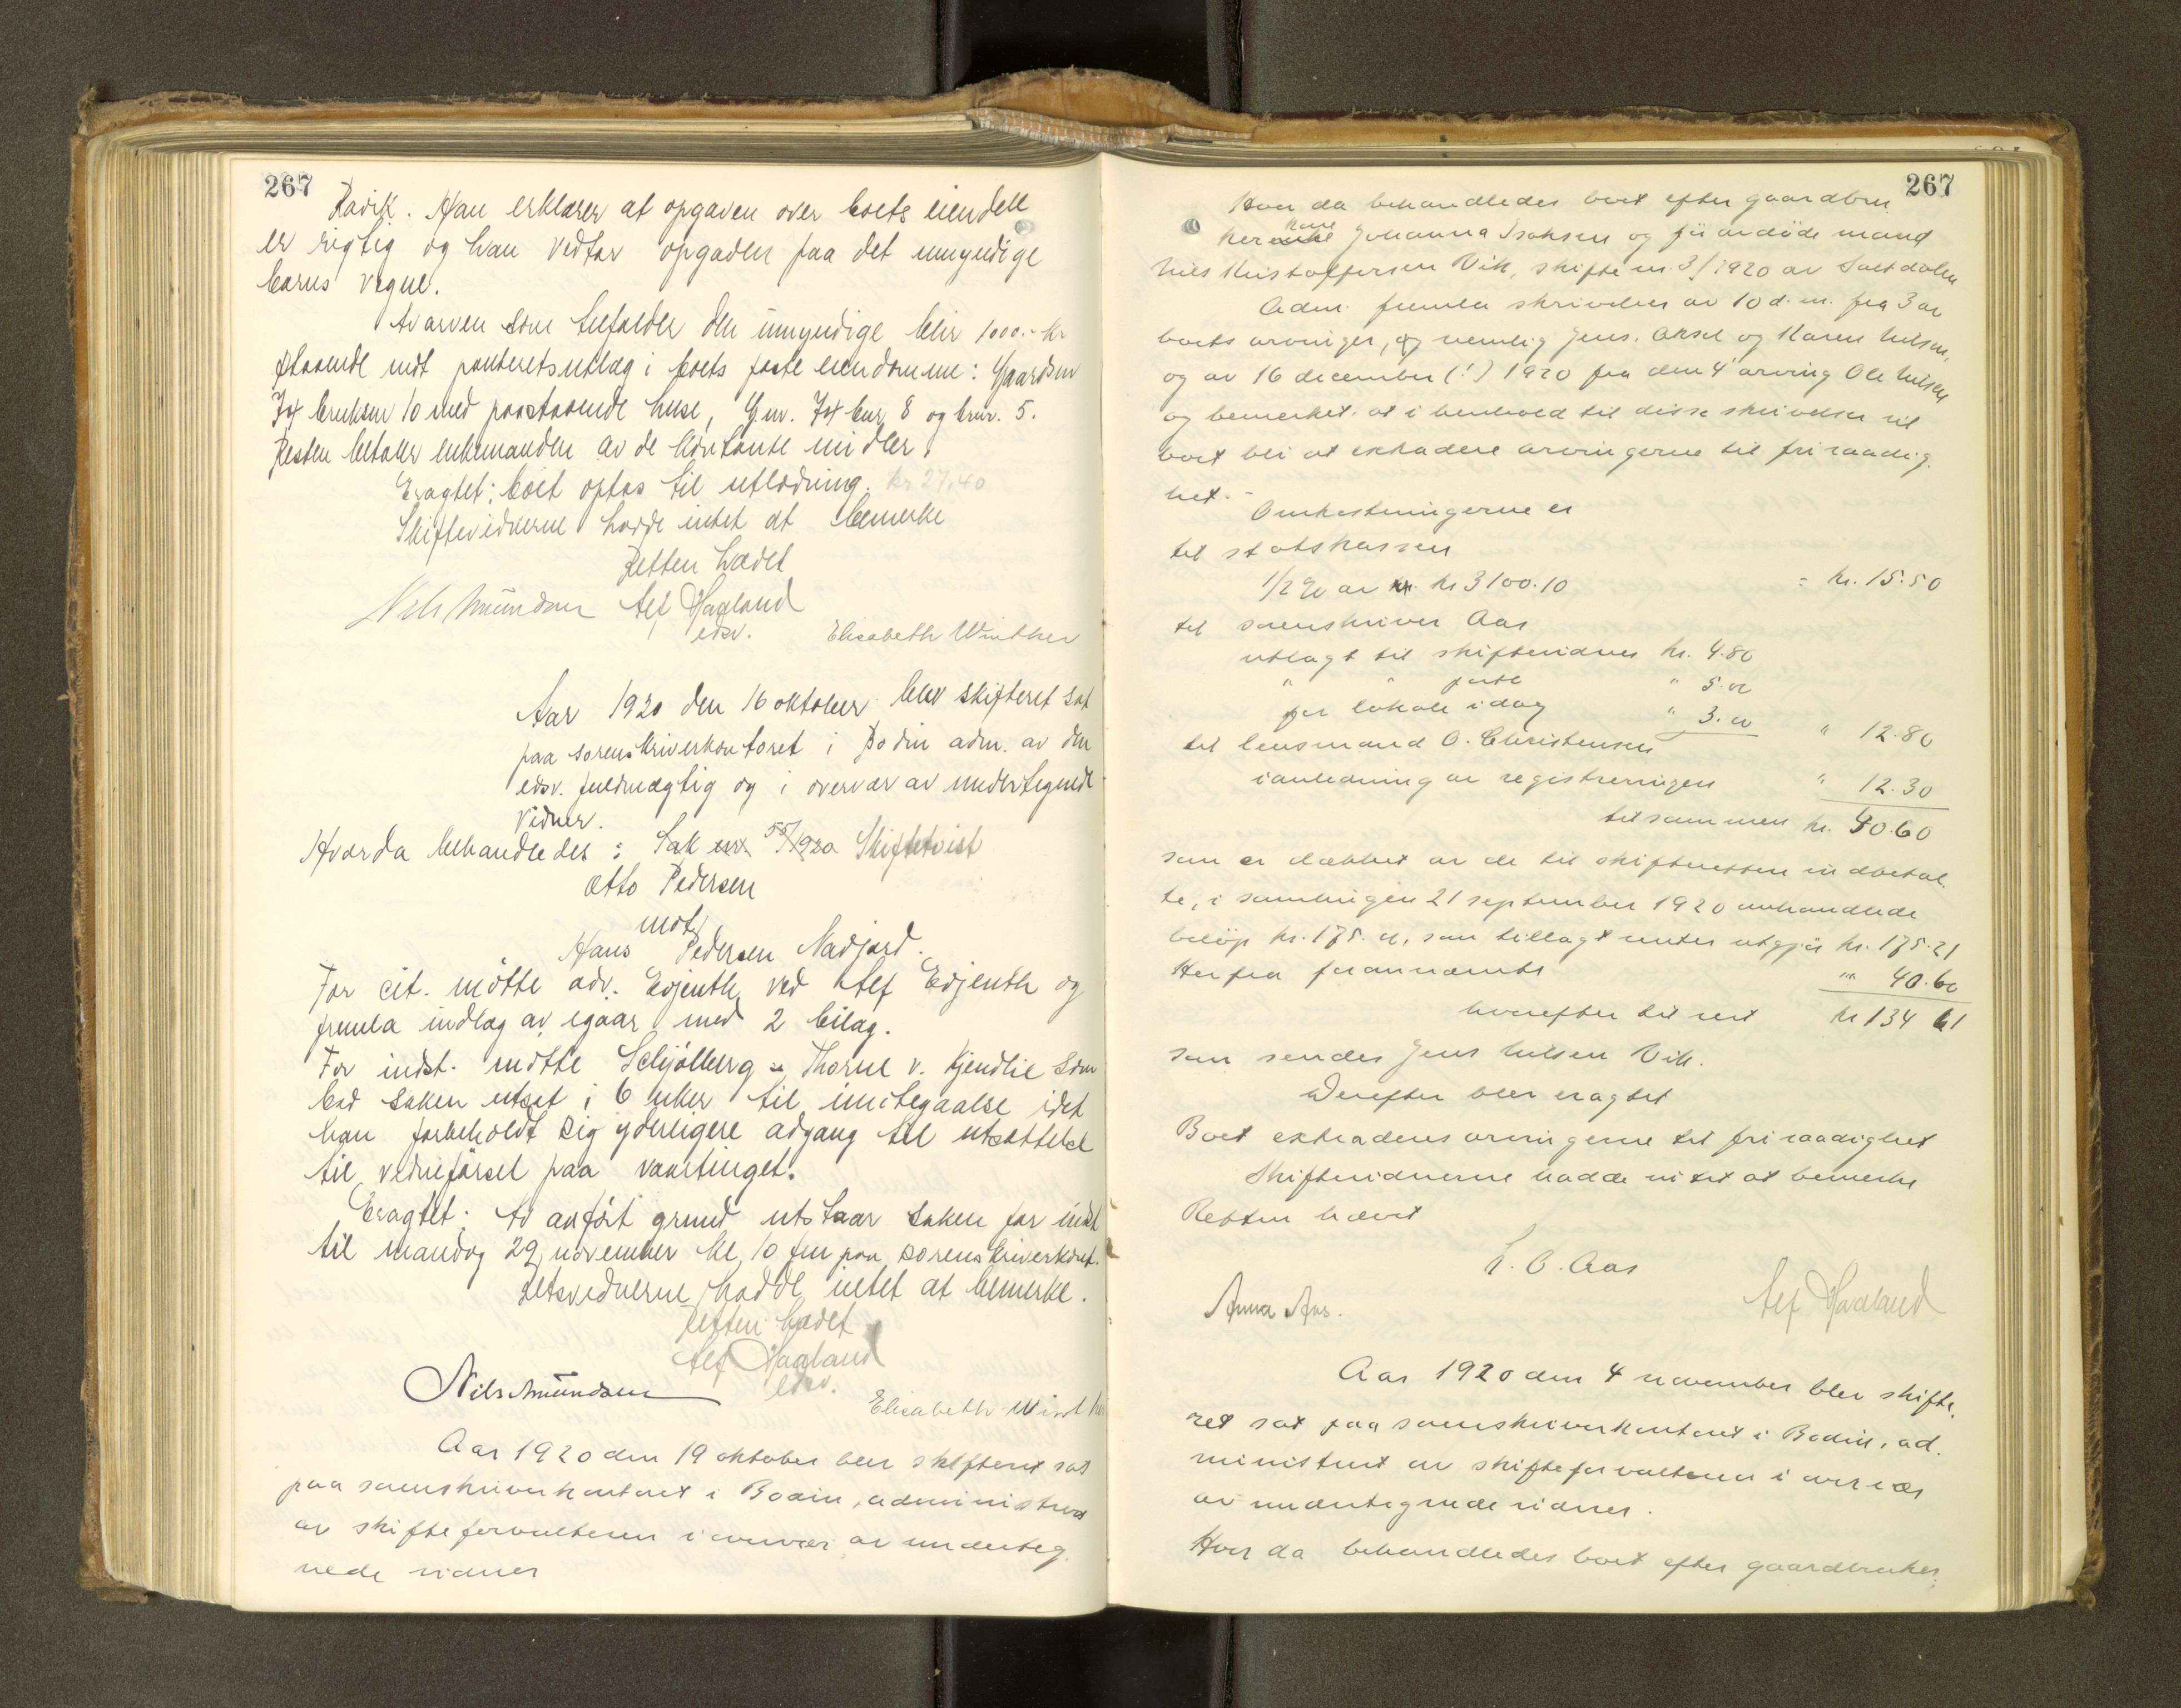 267
Ravik. Han erklærer at opgaven over boets eiendele
er rigtig og han vedtar opgaven paa det umyndige
barns vegne.
Av arven som tilfalder den umyndige blir 1000.- kr
staaende mot panteretsutlæg i boets faste eiendomme: Gaardsnr
74 bruksnr 10 med paastaaende huse, G.nr. 74 bnr 8 og bnr. 5.
Resten betaler enkemanden av de kontante midler.
Eragtet: boet optas til utlodning. kr 27.40
Skiftevidnerne hadde intet at bemerke
Retten hævet
Nils Amundsen Alf Hagland
edsv. Elisabeth Winther
Aar 1920 den 16 oktober blev skifteret sat
paa sorenskriverkontoret i Bodin adm. av den
edsv. fuldmægtig og i overvær av undertegnede
vidner.
Hvor da behandledes: Sak nr. 55/1920 Skiftetvist
Otto Pedersen
mot
Hans Pedersen Nadjord.
For cit. møtte adv. Evjenth ved Alf Evjenth og
fremla indlæg av igaar med 2 bilag.
For indst. møtte Schjølberg & Thorne v. Kjendlie som
bad saken utsat i 6 uker til imøtegaaelse idet
han forbeholdt sig yderligere adgang til utsættelse
til vidneførsel paa vaartinget.
Eragtet: Av anført grund utstaar saken for indst
til mandag 29 november kl. 10 fm paa sorenskriverkont.
Retsvidnerne hadde intet at bemerke.
Retten hævet
Alf Hagland
edsv.
Nils Amundsen
Elisabeth Winther
Aar 1920 den 19 oktober blev skifteret sat
paa sorenskriverkontoret i Bodin, administrert
av skifteforvalteren i overvær av underteg
nede vidner
267
Hvor da behandledes boet efter gaardbru
ker kone Johanna Isaksen og før avdøde mand
Nils Kristoffersen Vik, skifte nr. 3/1920 av Saltdalen
Adm. fremla skrivelser av 10 d.m. fra 3 av
boets arvinger, og nemlig Jens, Aksel og Karen Nilsen,
og av 16 december (!) 1920 fra den 4 arving Ole Nilsen
og bemerket at i henhold til disse skrivelser vil
boet bli at extradere arvingerne til fri raadig
het.-
Omkostningerne er
til statskassen
1/2 % av kr 3100.10 = kr. 15.50
til sorenskriver Aas
utlagt til skiftevidner kr. 4.80
" " porto " 5.00
for lokale idag " 3.00 " 12.80
til lensmand O. Christensen
i anledning av registreringen " 12.30
tilsammen kr. 40.60
som er dækket av de til skifteretten indbetal
te, i samlingen 21 september 1920 omhandlede
beløp kr. 175.00, som tillagt renter utgjør kr. 175.21
Herfra forannævnte " 40.60
hvorefter til rest kr 134 61
som sendes Jens Nilsen Vik.
Derefter blev eragtet
Boet extraderes arvingerne til fri raadighet
Skiftevidnerne hadde intet at bemerke
Retten hævet
L. O. Aas
Anna Aas. Alf Hagland
Aar 1920 den 4 november blev skifte
ret sat paa sorenskriverkontoret i Bodin, ad
ministrert av skifteforvalteren i overvær
av undertegnede vidner.
Hvor da behandledes boet efter gaardbruker